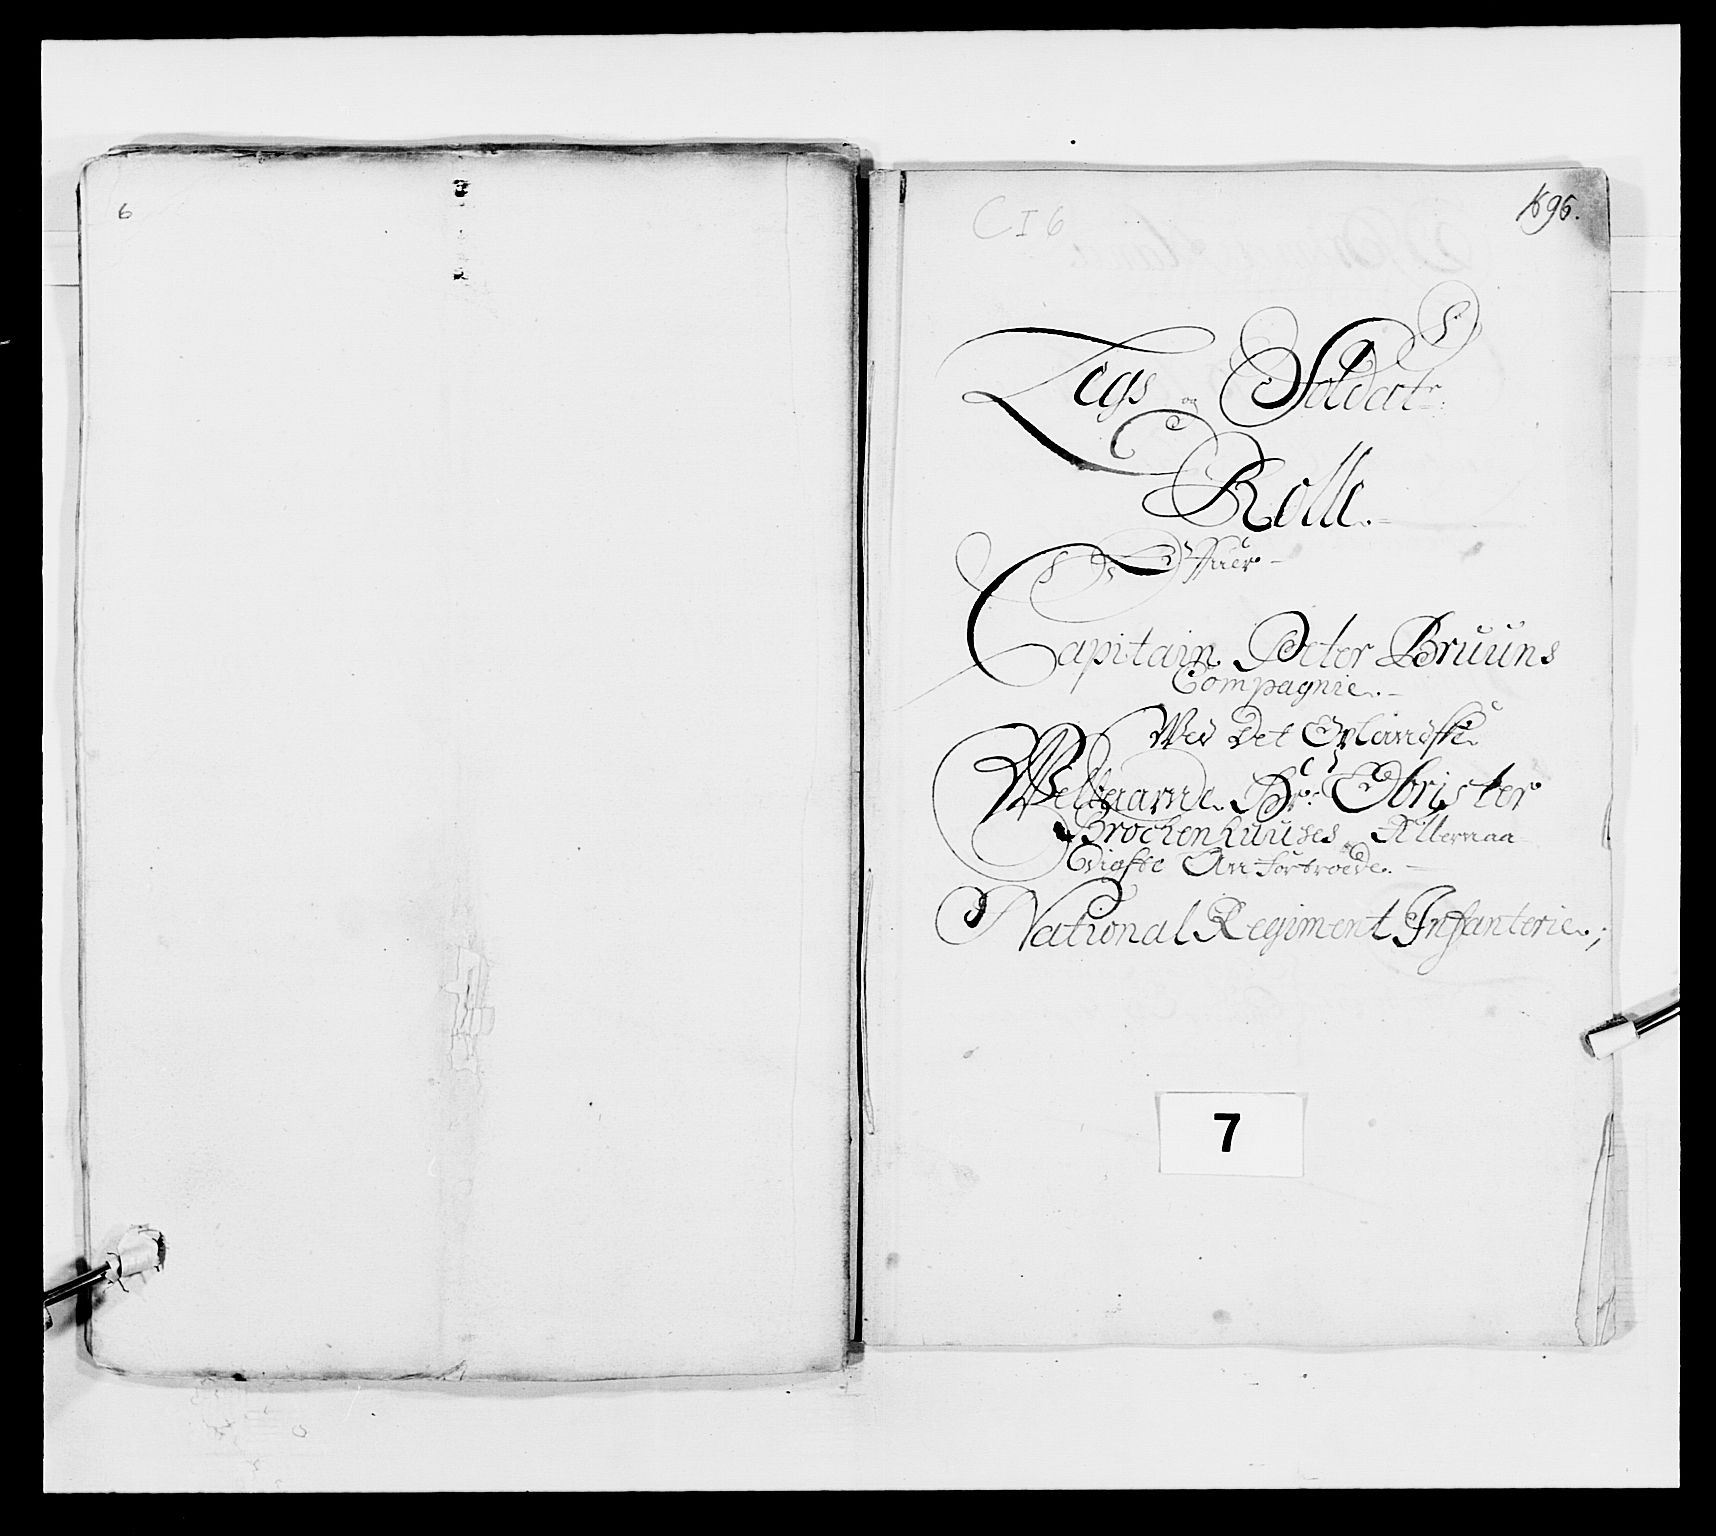 6
C I 6
1696.
Legs og Soldat
Rolle.
Offuer
Capitain Peter Bruuns
Compagnie.
Ved Det Oplandske
Velbaarne Hr: Obrister
Brockenhuuses Allernaa
digste Anfortroede.
National Regiment Infanterie;
7